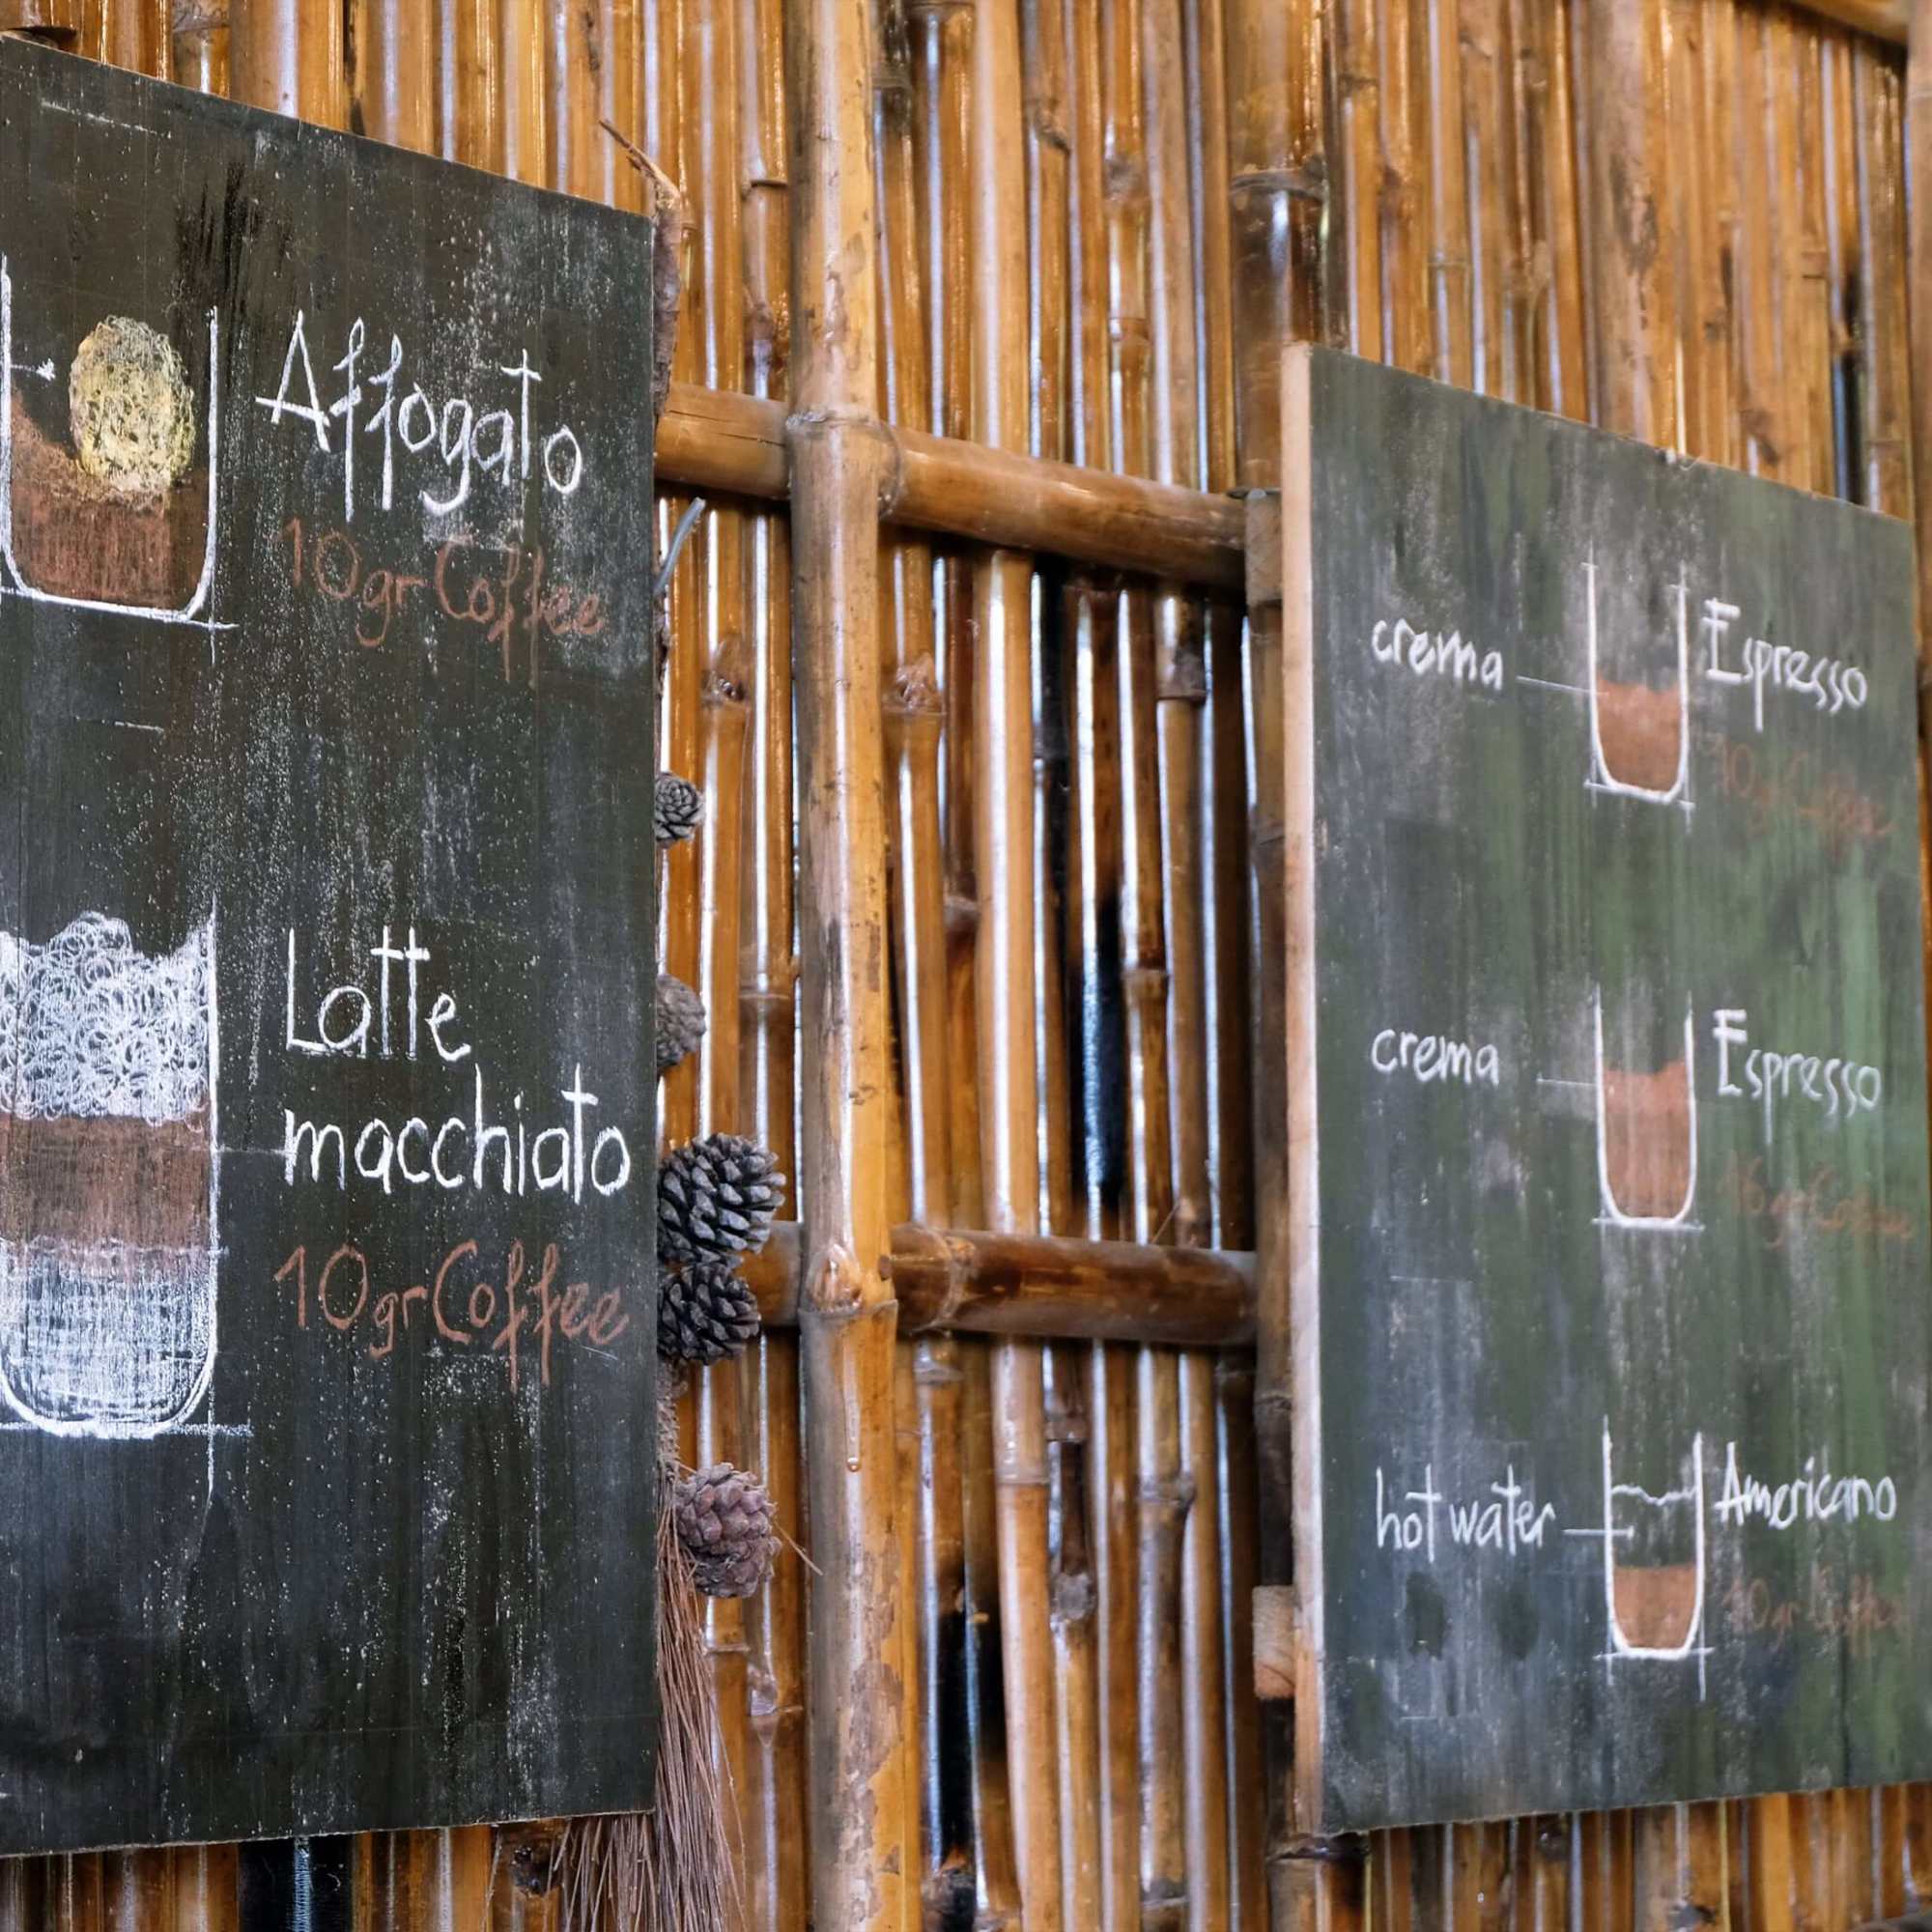 Affogato
10gr Coffee
Latte
macchiato
10gr Coffee
crema
Espresso
10gr Coffee
crema
Espresso
16gr Coffee
hot water
Americano
10gr Coffee